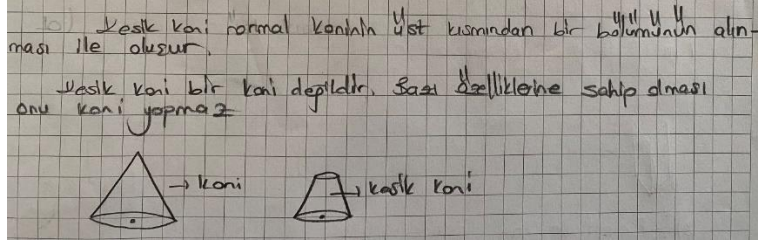 b) Kesik koni normal koninin üst kısmından bir bölümünün alın-
ması ile oluşur.
Kesik koni bir koni değildir. Bazı özelliklerine sahip olması
onu koni yapmaz
→ koni → kesik koni